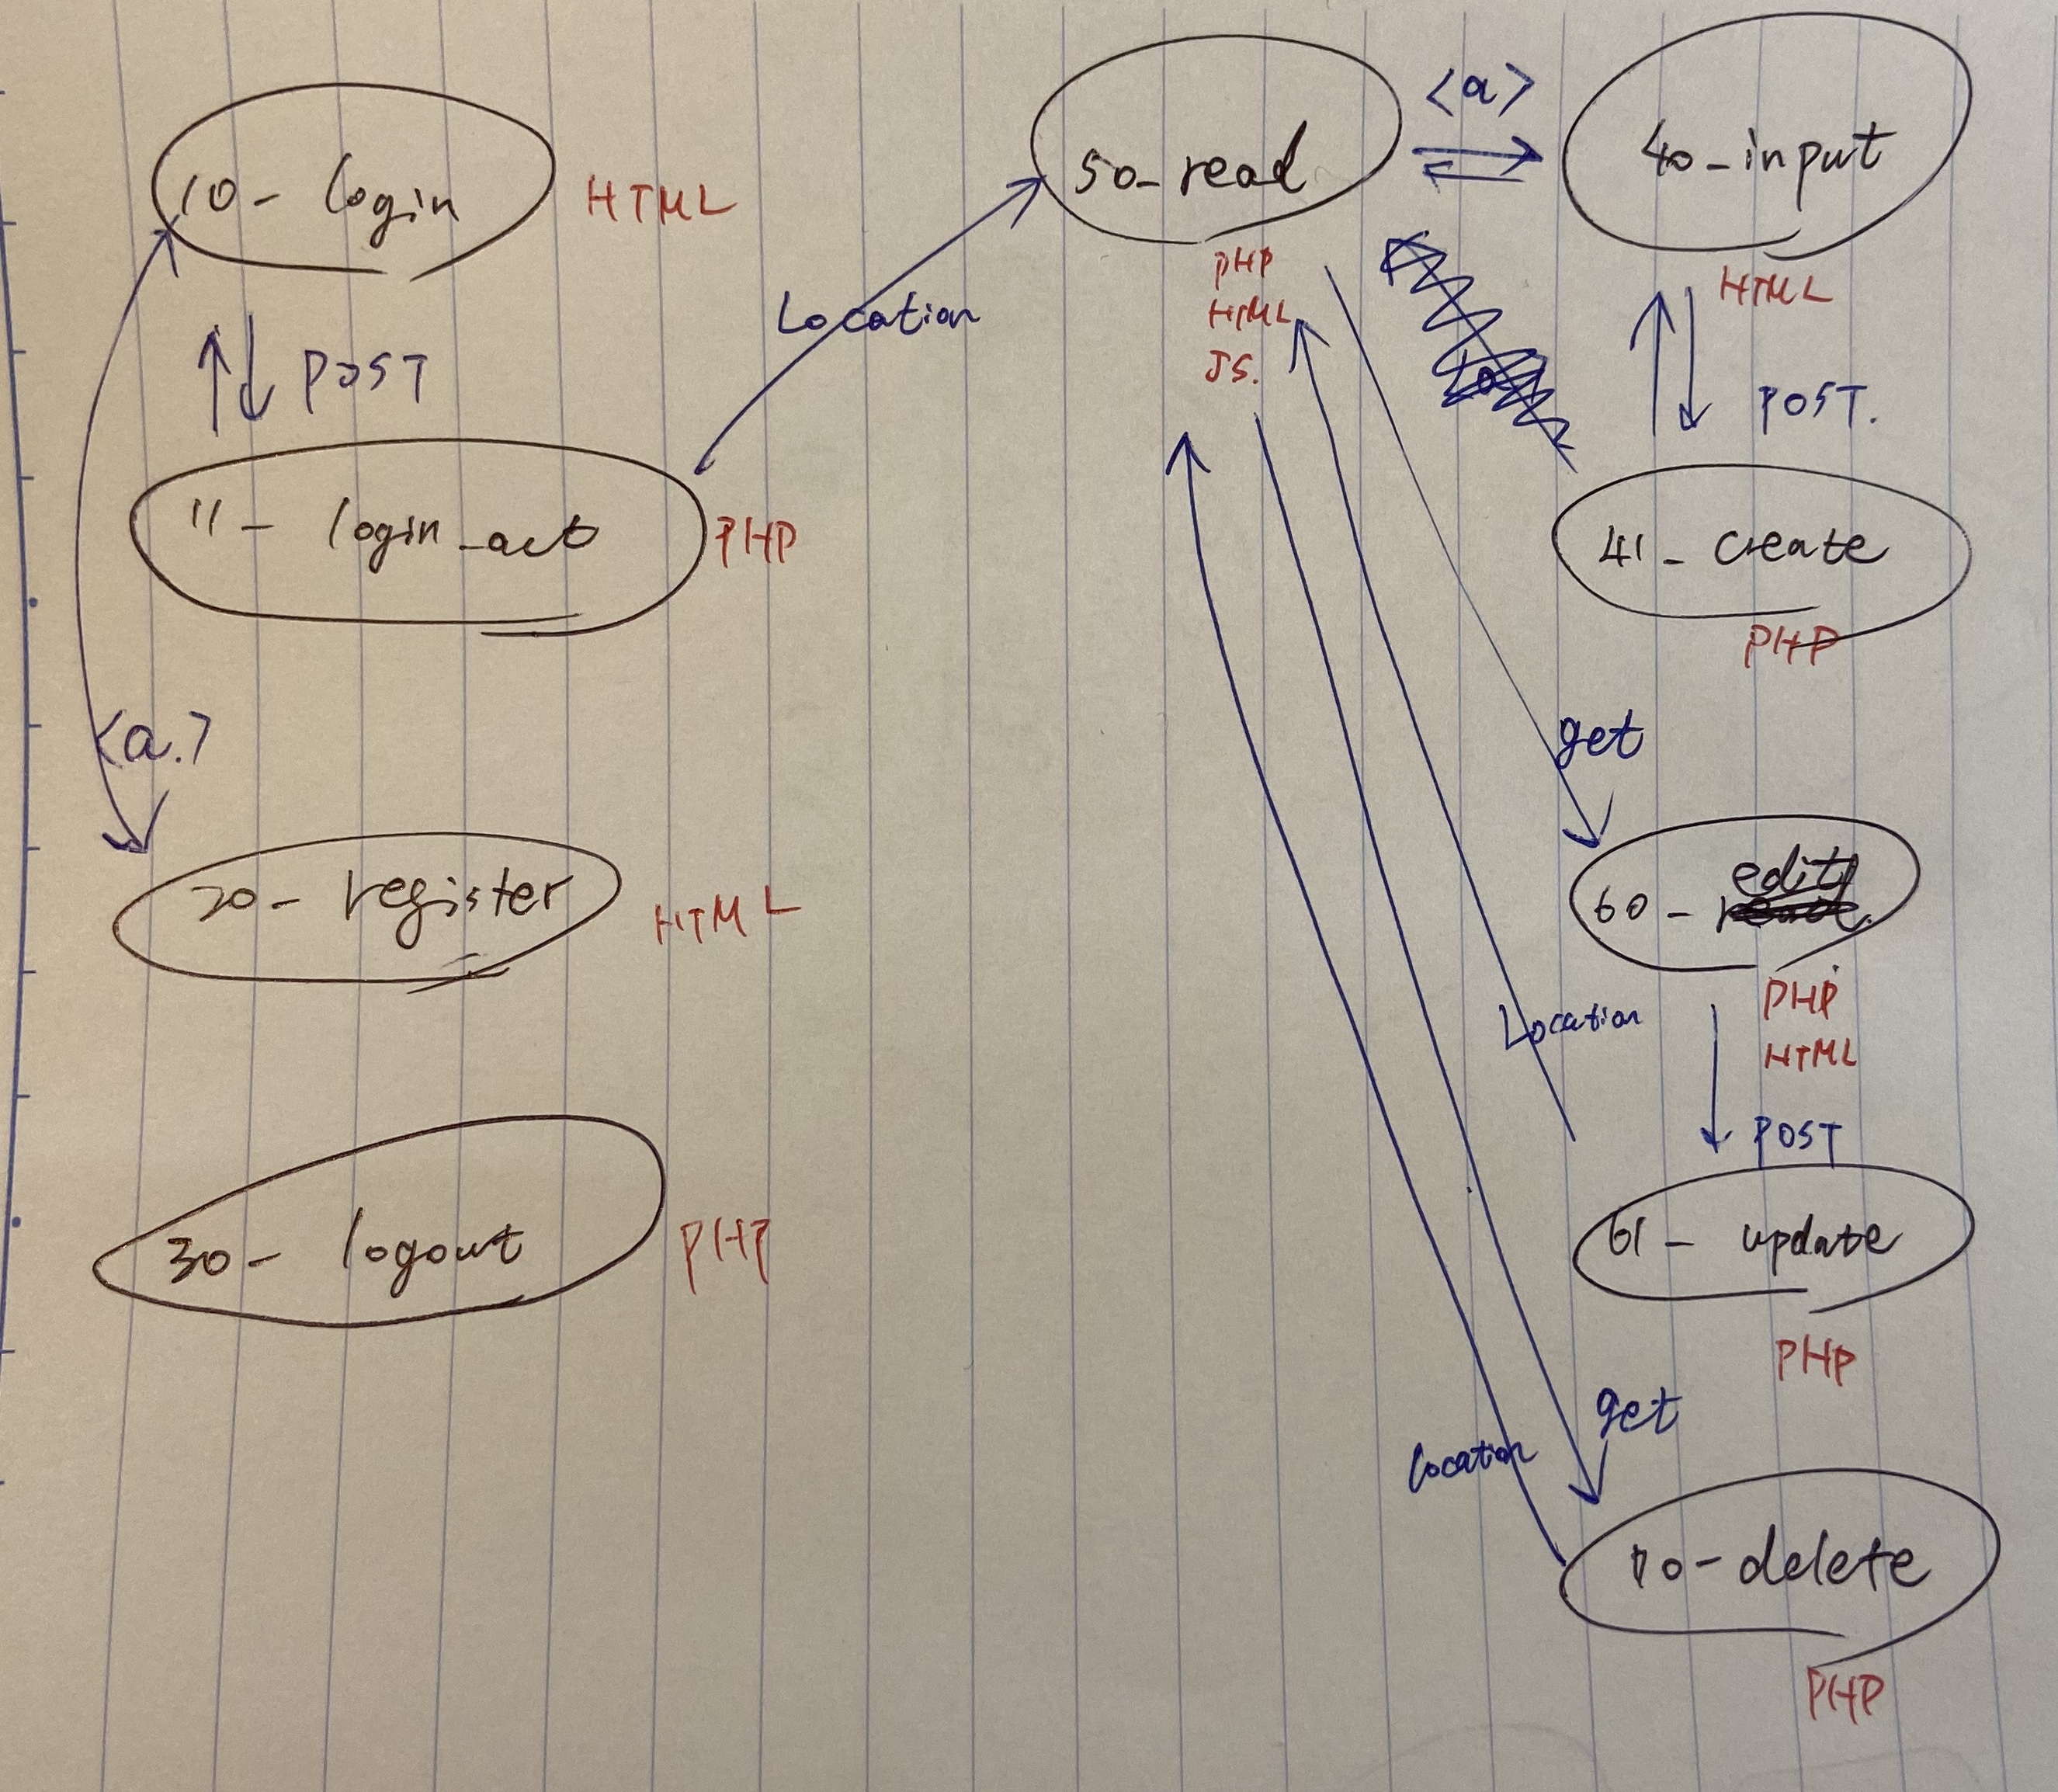 10- login
HTML
POST
11- login_act
PHP
<a.>
20- register
HTML
30- logout
PHP
Location
50_read
PHP
HTML
JS.
<a>
40_input
HTML
POST.
41_create
PHP
get
60- edit
PHP
HTML
Location
POST
61- update
PHP
get
location
70-delete
PHP